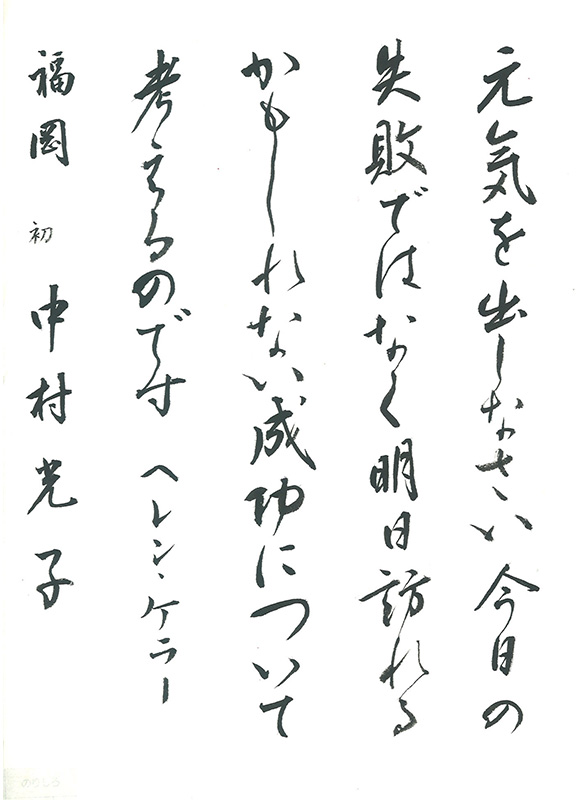 元気を出しなさい今日の
失敗ではなく明日訪れる
かもしれない成功について
考えるのです ヘレン・ケラー
福岡 初 中村光子
のりしろ